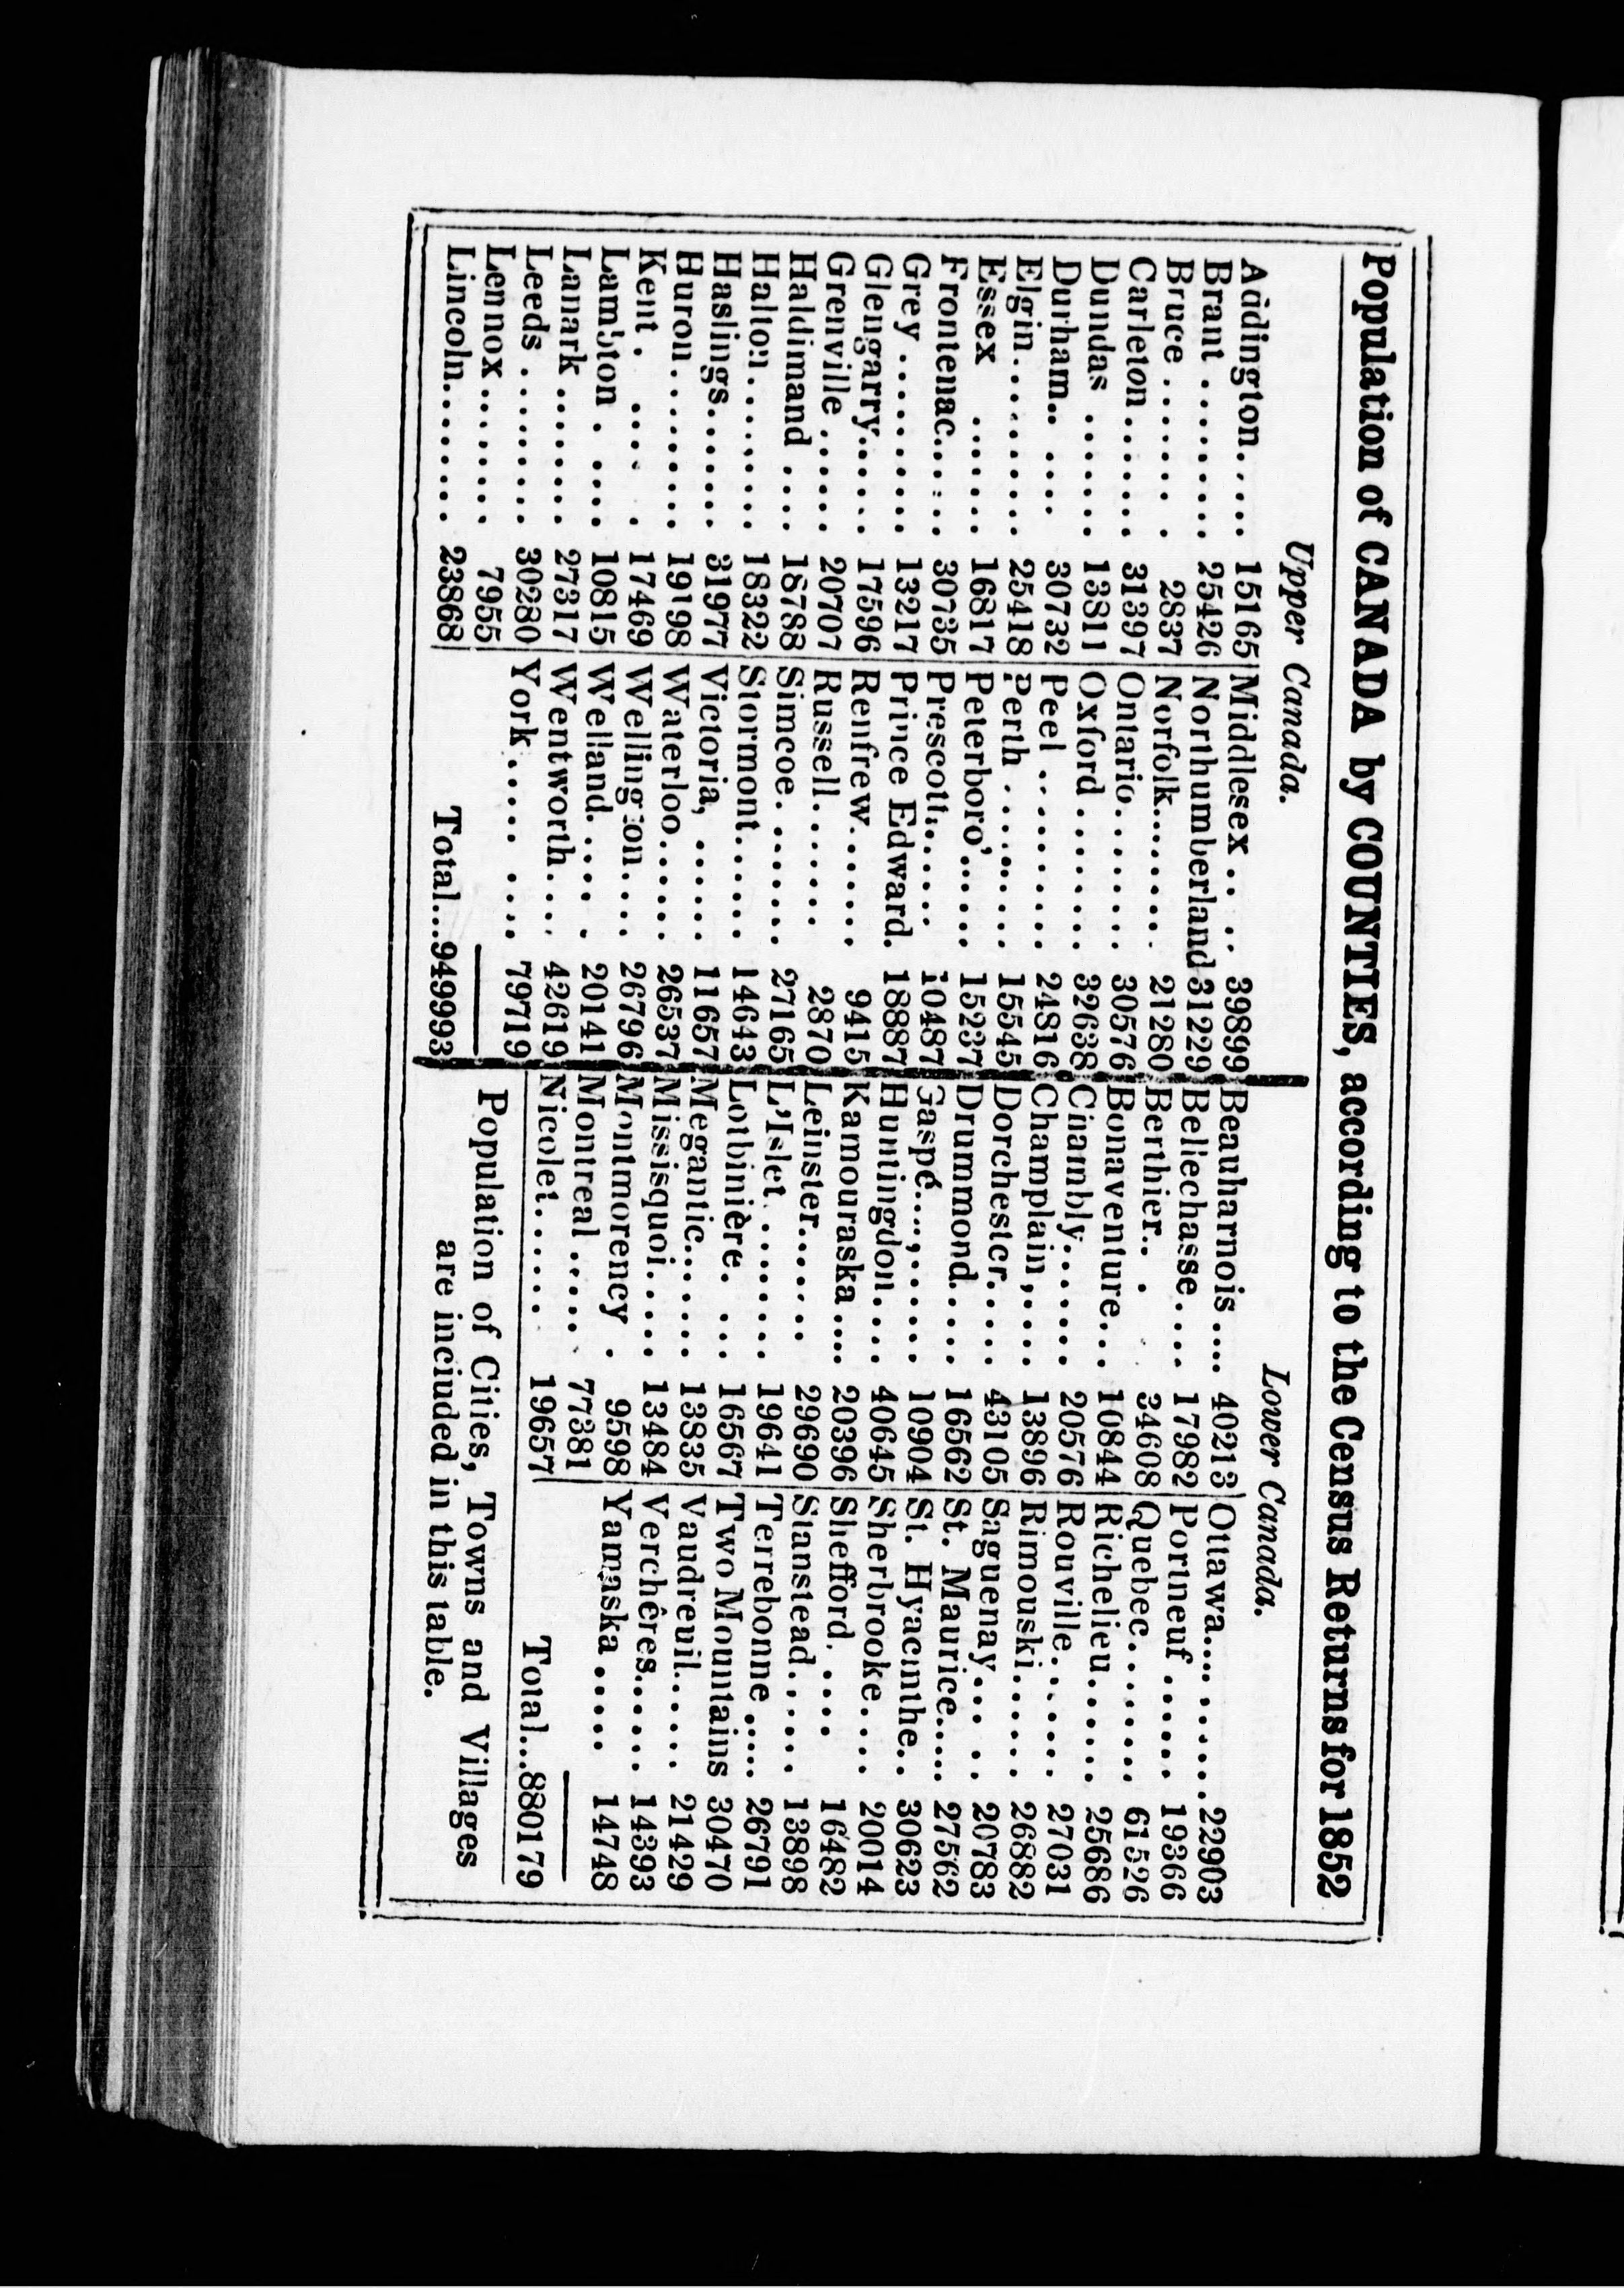 Population of CANADA by COUNTIES, according to the Census Returns for 1852
Upper Canada.
Addington..... 15165
Brant ......... 25426
Bruce ....... . 2837
Carleton....... 31397
Dundas ....... 13811
Durham.. .... 30732
Elgin.......... 25418
Essex ....... 16817
Frontenac...... 30735
Grey ......... 13217
Glengarry...... 17596
Grenville ...... 20707
Haldimand .... 18788
Halton......... 18322
Hastings....... 31977
Huron......... 19198
Kent . .... . 17469
Lambton . .... 10815
Lanark ........ 27317
Leeds ......... 30280
Lennox ........ 7955
Lincoln........ 23868
Middlesex .. .. 39899
Northumberland 31229
Norfolk......... 21280
Ontario........ 30576
Oxford ........ 32638
Peel .......... 24816
Perth ......... 15545
Peterboro'...... 15237
Prescott....... 10487
Prince Edward. 18887
Renfrew....... 9415
Russell....... 2870
Simcoe. ....... 27165
Stormont...... 14643
Victoria, ...... 11657
Waterloo...... 26537
Wellington.... 26796
Welland. .... . 20141
Wentworth.... 42619
York ..... .... 79719
Total...949993
Lower Canada.
Beauharnois.... 40213
Bellechasse.... 17982
Berthier.. . 34608
Bonaventure... 10844
Chambly....... 20576
Champlain,.... 13896
Dorchester..... 43105
Drummond.... 16562
Gaspé....,...... 10904
Huntingdon.... 40645
Kamouraska .... 20396
Leinster....... 29690
L'Islet ........ 19641
Lotbinière. ... 16567
Megantic....... 13835
Missisquoi..... 13484
Montmorency . 9598
Montreal ..... 77381
Nicolet...... 19657
Ottawa.... ...... 22903
Portneuf ...... 19366
Quebec........ 61526
Richelieu...... 25686
Rouville....... 27031
Rimouski...... 26882
Saguenay... .. 20783
St. Maurice..... 27562
St. Hyacinthe.. 30623
Sherbrooke.... 20014
Shefford. .... 16482
Stanstead...... 13898
Terrebonne ..... 26791
Two Mountains 30470
Vaudreuil...... 21429
Verchères...... 14393
Yamaska ..... 14748
Total...880179
Population of Cities, Towns and Villages
are included in this table.